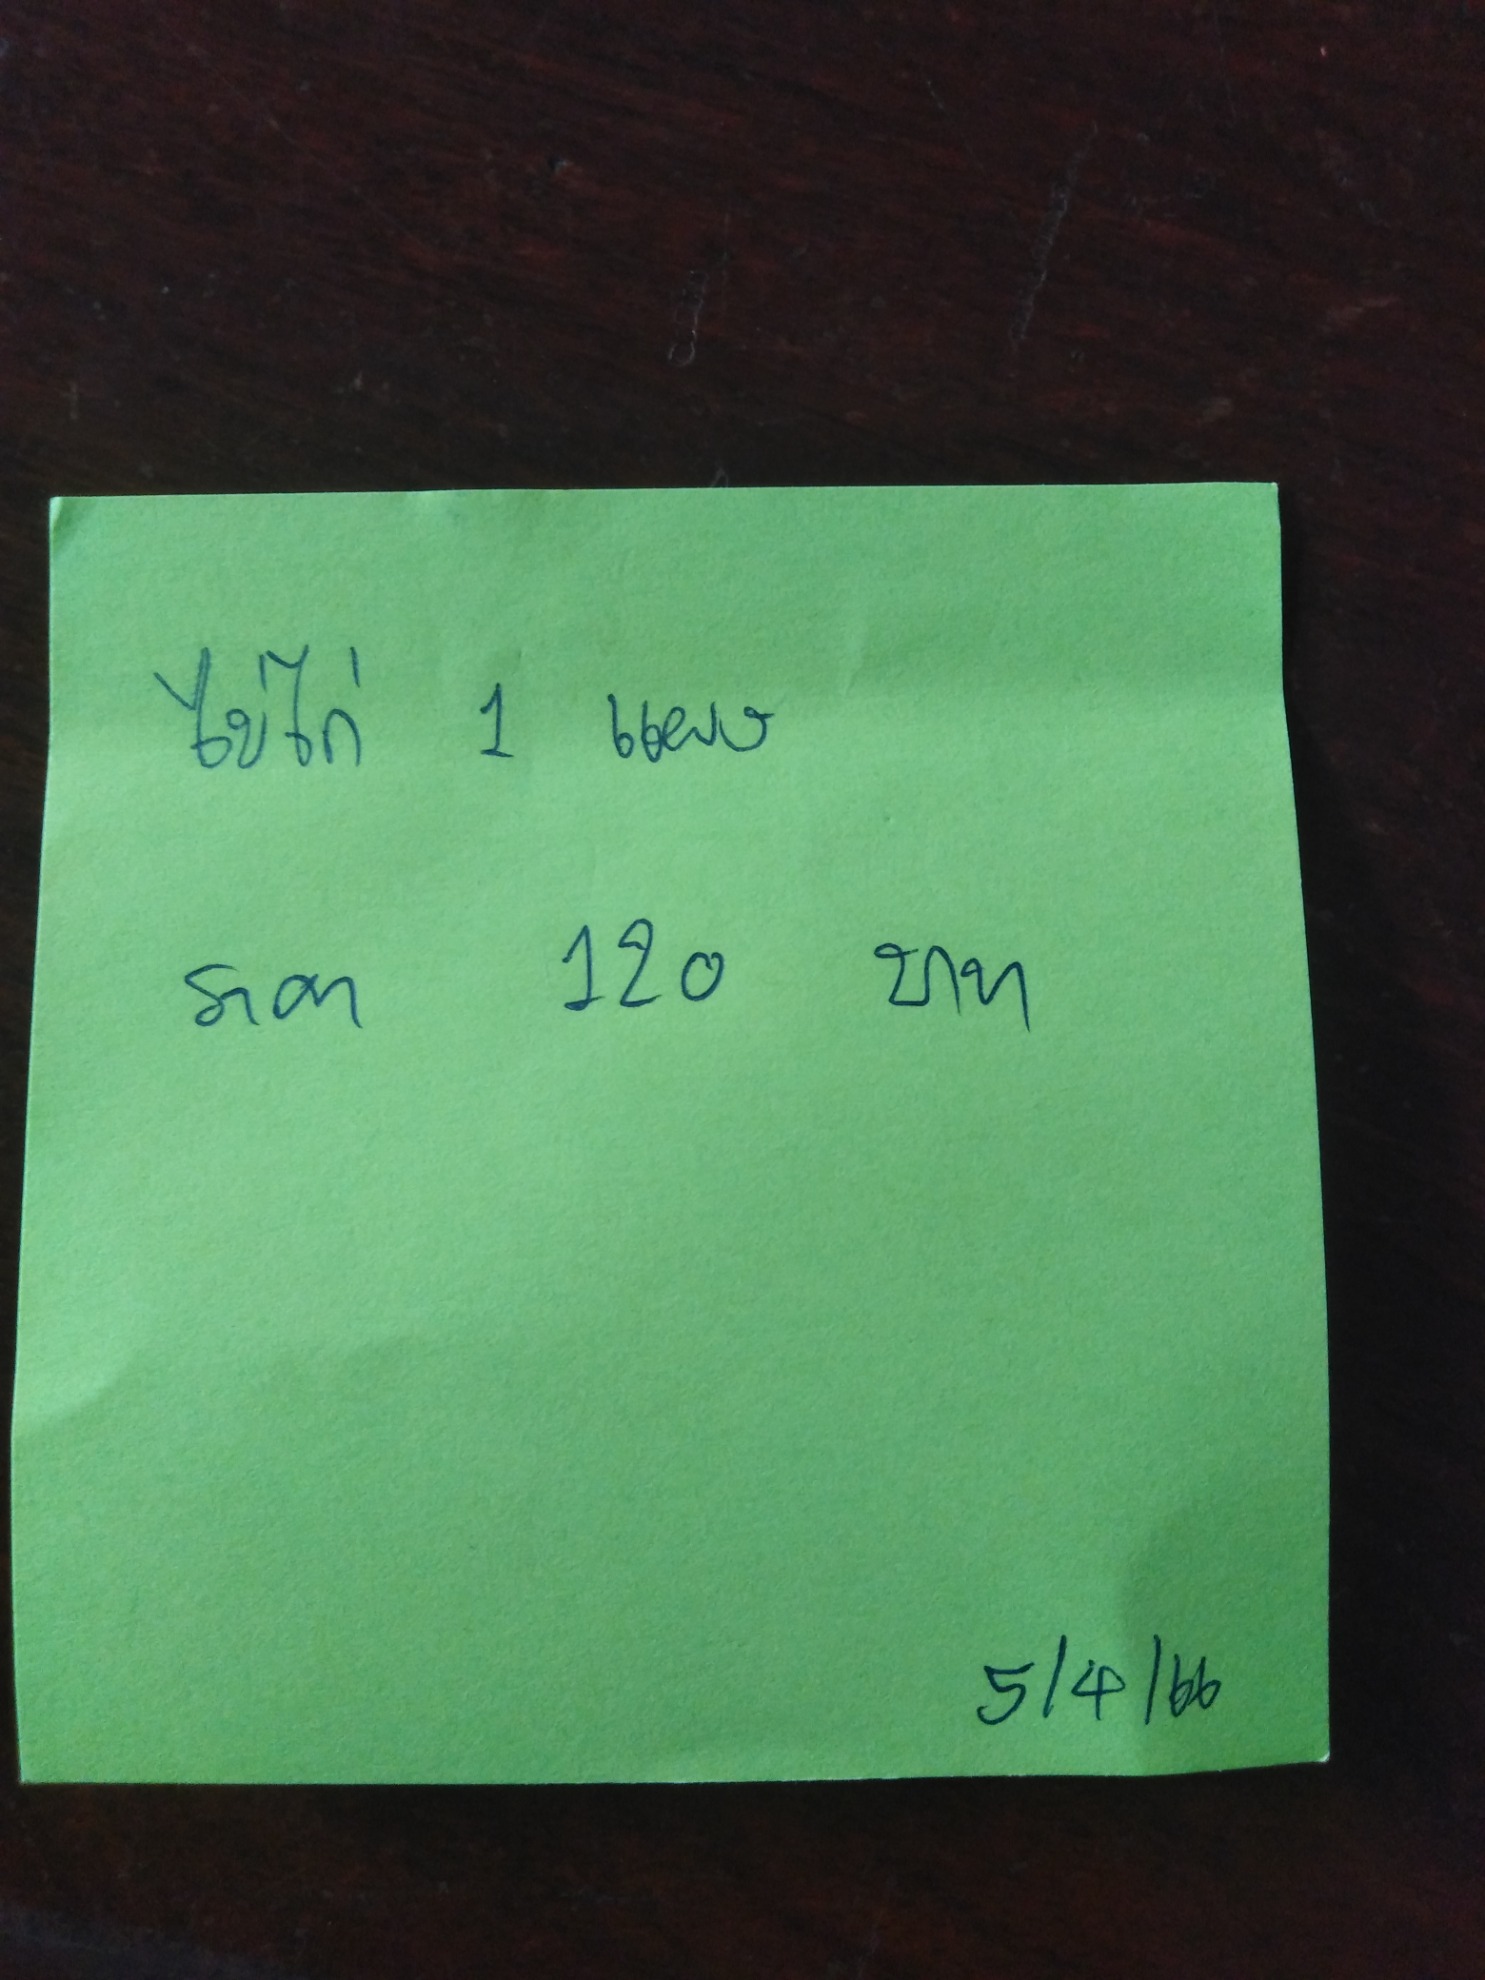 ไข่ไก่ 1 แผง
ราคา 120 บาท
5/4/66